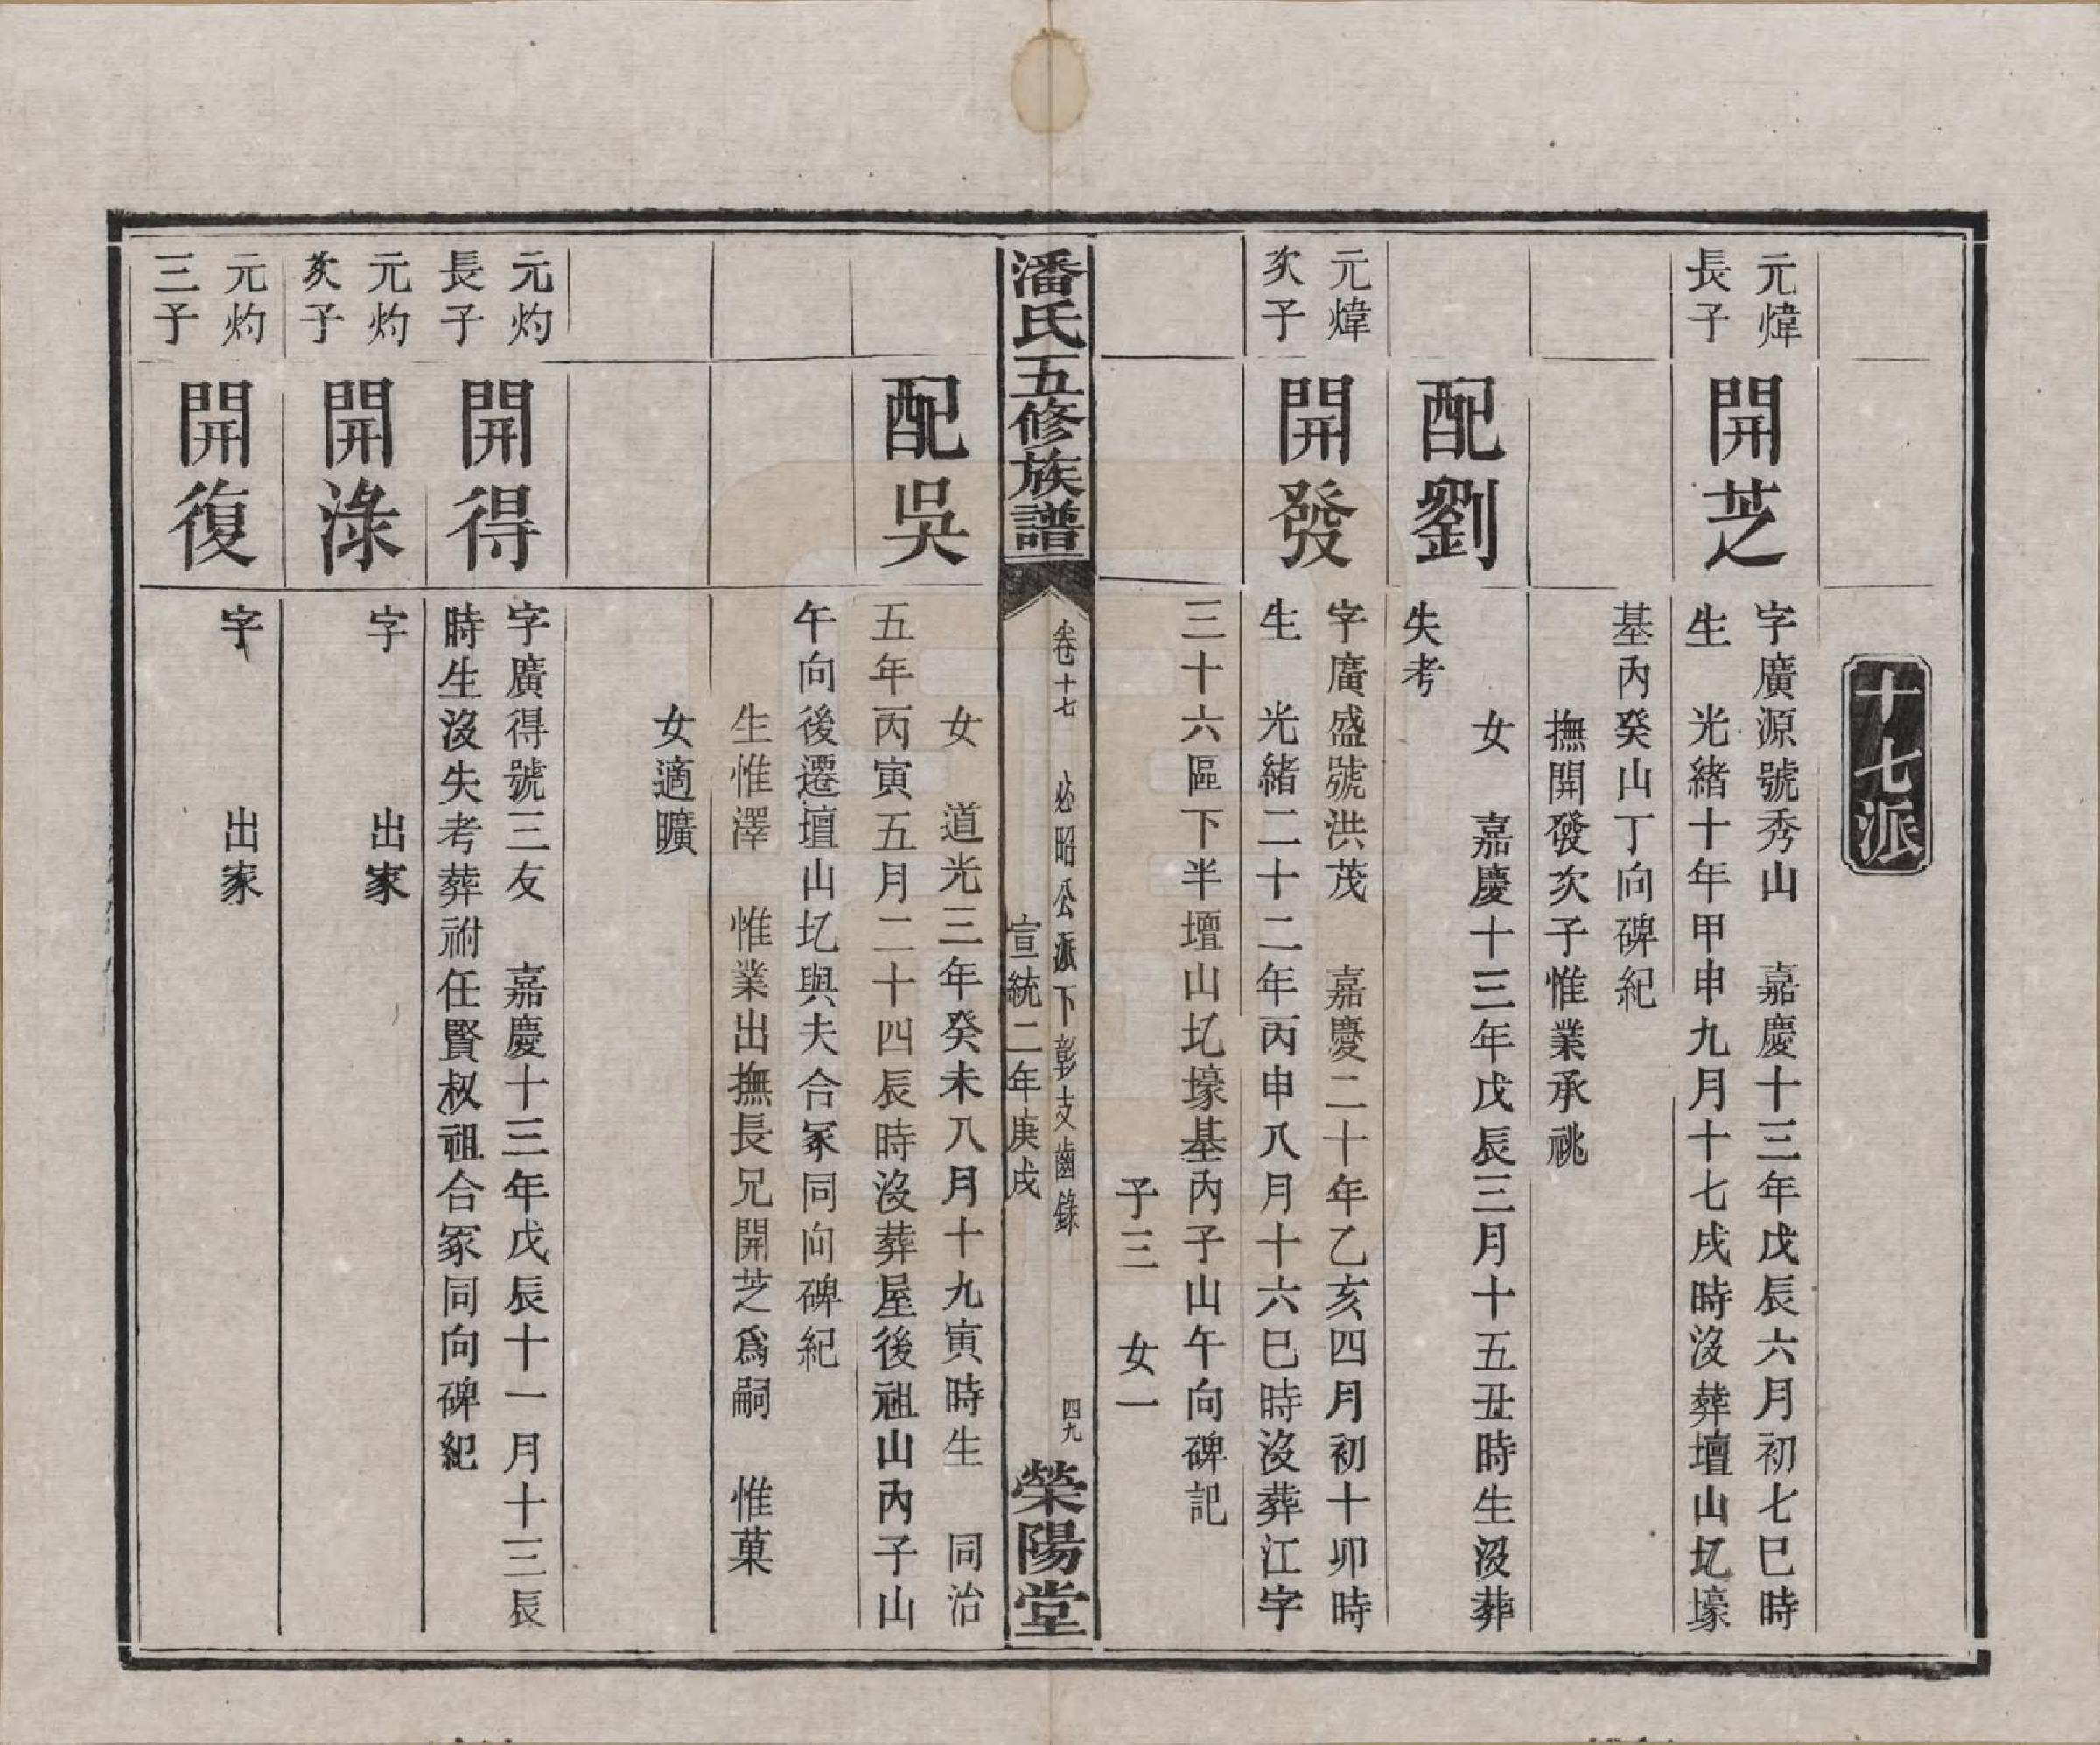 十七派
元煒
長子
開芝
字廣源號秀山　嘉慶十三年戊辰六月初七巳時
生　光緒十年甲申九月十七戌時沒葬壇山圠壕
基內癸山丁向碑紀
撫開發次子惟業承祧
配劉
女　嘉慶十三年戊辰三月十五丑時生沒葬
失考
元煒
次子
開發
字廣盛號洪茂　嘉慶二十年乙亥四月初十卯時
生　光緒二十二年丙申八月十六巳時沒葬江字
三十六區下半壇山圠壕基內子山午向碑記
子三　女一
潘氏五修族譜
卷十七　必昭公派下彰支齒錄
宣統二年庚戌
四九
榮陽堂
配吳
女　道光三年癸未八月十九寅時生　同治
五年丙寅五月二十四辰時沒葬屋後祖山內子山
午向後遷壇山圠與夫合冢同向碑紀
生惟澤　惟業出撫長兄開芝爲嗣　惟菓
女適曠
元灼
長子
開得
字廣得號三友　嘉慶十三年戊辰十一月十三辰
時生沒失考葬祔任賢叔祖合冢同向碑紀
元灼
次子
開淥
字　出家
元灼
三子
開復
字　出家